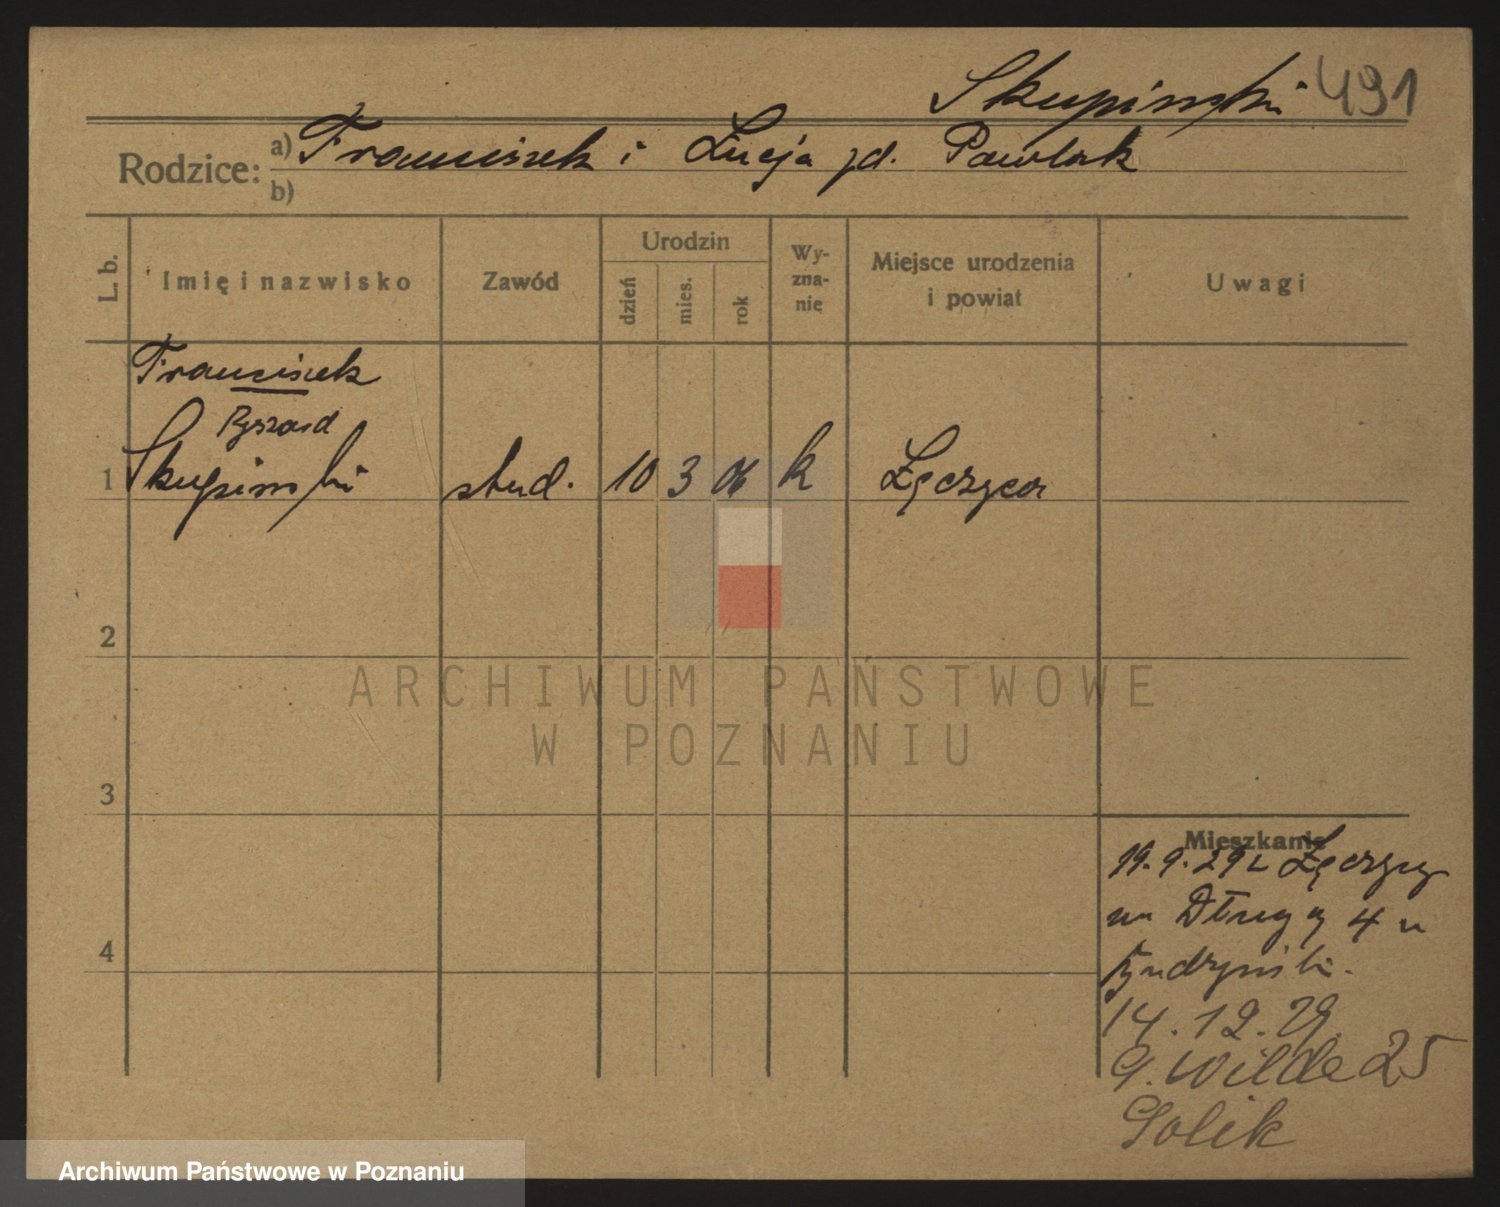 Skupinski 491
Rodzice: a) Franciszek i Łucja zd. Pawlak
b)
L. b.
Imię i nazwisko
Zawód
Urodzin
dzień
mies.
rok
Wy-
zna-
nie
Miejsce urodzenia
i powiat
Uwagi
Franciszek
Ryszard
1 Skupinski stud. 10 3 06 k Łęczyca
2
3
4
Mieszkanie
19.9.29 z Łęczycy
na Długą 4 u
14.12.29.
G. Wilda 25
Solik
ARCHIWUM PAŃSTWOWE
W POZNANIU
Archiwum Państwowe w Poznaniu